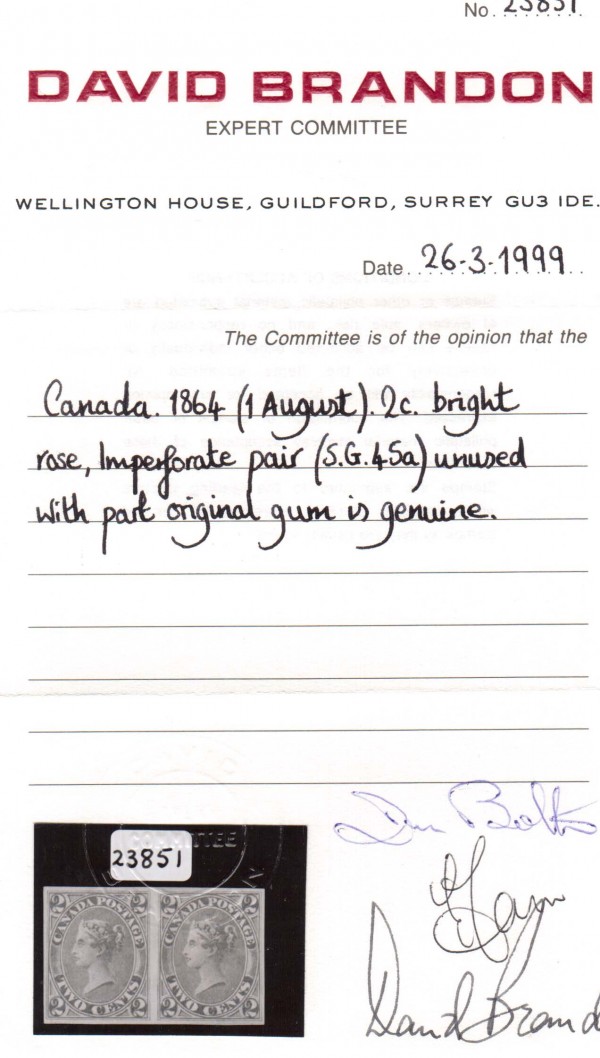 No. 23851
DAVID BRANDON
EXPERT COMMITTEE
WELLINGTON HOUSE, GUILDFORD, SURREY GU3 1DE.
Date 26-3-1999
The Committee is of the opinion that the
Canada. 1864 (1 August). 2c. bright
rose, Imperforate pair (S.G.45a) unused
with part original gum is genuine.
COMMITTEE
23851
CANADA POSTAGE
2 2
TWO CENTS
2 2
CANADA POSTAGE
2 2
TWO CENTS
2 2
David Brand